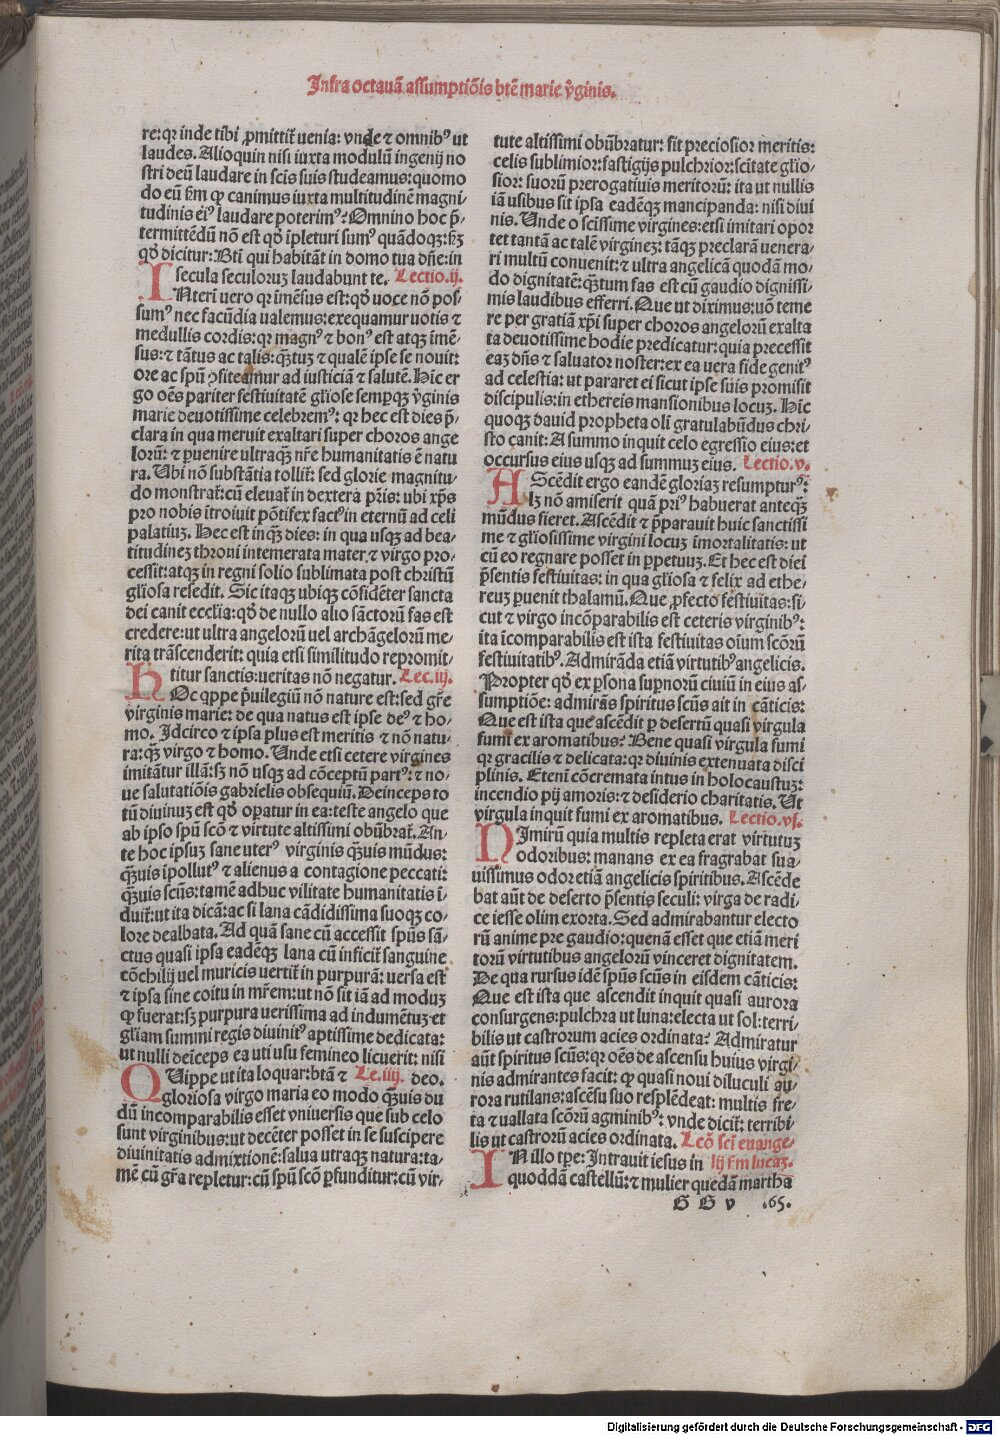 Infra octauā assumptiōis btē marie v̄ginis.
re: qꝛ inde tibi ꝓmittit̄ uenia: vnde ⁊ omnibꝰ ut
laudes. Alioquin nisi iuxta modulū ingenij no
stri deū laudare in scīs suis studeamus: quomo
do eū s̄m ꝙ canimus iuxta multitudinē magni
tudinis eiꝰ laudare poterimꝰ? Omnino hoc p̄-
termittēdū nō est qd̄ īpleturi sumꝰ quādoqꝫ: sꝫ
qd̄ dicitur: Btī qui habitāt in domo tua dn̄e: in
secula seculoruꝫ laudabunt te. Lectio.ij.
INterī uero qꝛ imēsus est: qd̄ uoce nō pos-
sumꝰ nec facūdia ualemus: exequamur uotis ⁊
medullis cordis: qꝛ magnꝰ ⁊ bonꝰ est atqꝫ īmē-
sus: ⁊ tātus ac talis: qꝫtuꝫ ⁊ qualē ipse se nouit:
ore ac spū ꝯfiteamur ad iusticiā ⁊ salutē. Hīc er
go oēs pariter festiuitatē glīose sempqꝫ v̄ginis
marie deuotissime celebremꝰ: qꝛ hec est dies p̄-
clara in qua meruit exaltari super choros ange
lorū: ⁊ ꝑuenire ultraqꝫ nr̄e humanitatis ē natu
ra. Ubi nō substātia tollit̄: sed glorie magnitu-
do monstrat̄: cū eleuat̄ in dextera pr̄is: ubi xp̄s
pro nobis ītroiuit pōtifex factꝰ in eternū ad celi
palatiuꝫ. Hec est inqꝫ dies: in qua usqꝫ ad bea-
titudineꝫ throni intemerata mater ⁊ virgo pro-
cessit: atqꝫ in regni solio sublimata post christū
glīosa resedit. Sic itaqꝫ ubiqꝫ cōfidēter sancta
dei canit ecclīa: qd̄ de nullo alio sāctorū fas est
credere: ut ultra angelorū uel archāgelorū me-
rita trāscenderit: quia etsi similitudo repromit-
titur sanctis: ueritas nō negatur. Lec.iij.
HOc qppe p̄uilegiū nō nature est: sed gr̄e
virginis marie: de qua natus est ipse deꝰ ⁊ ho-
mo. Idcirco ⁊ ipsa plus est meritis ⁊ nō natu-
ra: qꝫ virgo ⁊ homo. Unde etsi cetere virgines
imitātur illā: sꝫ nō usqꝫ ad cōceptū partꝰ: ⁊ no-
ue salutatiōis gabrielis obsequiū. Deinceps to
tū diuinuꝫ est qd̄ oꝑatur in ea: teste angelo que
ab ipso spū scō ⁊ virtute altissimi obūbrat̄. An-
te hoc ipsuꝫ sane uterꝰ virginis qꝫuis mūdus:
qꝫuis īpollutꝰ ⁊ alienus a contagione peccati:
qꝫuis scūs: tamē adhuc vilitate humanitatis ī-
duit̄: ut ita dicā: ac si lana cādidissima suoqꝫ co-
lore dealbata. Ad quā sane cū accessit spūs sā-
ctus quasi ipsa eadēqꝫ lana cū inficit̄ sanguine
cōchilij uel muricis uertit̄ in purpurā: uersa est
⁊ ipsa sine coitu in mr̄em: ut nō sit iā ad moduꝫ
ꝙ fuerat: sꝫ purpura uerissima ad indumētuꝫ et
glīam summi regis diuinitꝰ aptissime dedicata:
ut nulli deīceps ea uti usu femineo licuerit: nisi
QUippe ut ita loquar: btā ⁊ Le.iiij. deo.
gloriosa virgo maria eo modo qꝫuis du
dū incomparabilis esset vniuersis que sub celo
sunt virginibus: ut decēter posset in se suscipere
diuinitatis admixtionē: salua utraqꝫ natura: ta-
mē cū gr̄a repletur: cū spū scō ꝑfunditur: cū vir-
tute altissimi obūbratur: fit preciosior meritis:
celis sublimior: fastigijs pulchrior: scītate glīo-
sior: suorū prerogatiuis meritorū: ita ut nullis
iā usibus sit ipsa eadēqꝫ mancipanda: nisi diui
nis. Unde o scīssime virgines: etsi imitari opor
tet tantā ac talē virgineꝫ: tāqꝫ preclarā uenera-
ri multū conuenit: ⁊ ultra angelicā quodā mo-
do dignitatē: qꝫtum fas est cū gaudio dignissi-
mis laudibus efferri. Que ut diximus: nō teme
re per gratiā xp̄i super choros angelorū exalta
ta deuotissime hodie predicatur: quia precessit
eaꝫ dn̄s ⁊ saluator noster: ex ea uera fide genitꝰ
ad celestia: ut pararet ei sicut ipse suis promisit
discipulis: in ethereis mansionibus locuꝫ. Hīc
quoqꝫ dauid propheta olī gratulabūdus chri-
sto canit: A summo inquit celo egressio eius: et
occursus eius usqꝫ ad summuꝫ eius. Lectio.v.
AScēdit ergo eandē gloriaꝫ resumpturꝰ:
qꝫ nō amiserit quā priꝰ habuerat anteqꝫ
mūdus fieret. Ascēdit ⁊ p̄parauit huic sanctissi
me ⁊ glīosissime virgini locuꝫ īmortalitatis: ut
cū eo regnare posset in ꝑpetuuꝫ. Et hec est diei
p̄sentis festiuitas: in qua glīosa ⁊ felix ad ethe-
reuꝫ ꝑuenit thalamū. Que ꝓfecto festiuitas: si-
cut ⁊ virgo incōparabilis est ceteris virginibꝰ:
ita īcomparabilis est ista festiuitas oīum scōrū
festiuitatibꝰ. Admirāda etiā virtutibꝰ angelicis.
Propter qd̄ ex ꝑsona suꝑnorū ciuiū in eius as-
sumptiōe: admirās spiritus scūs ait in cāticis:
Que est ista que ascēdit ꝑ desertū quasi virgula
fumi ex aromatibus? Bene quasi virgula fumi
qꝛ gracilis ⁊ delicata: qꝛ diuinis extenuata disci
plinis. Etenī cōcremata intus in holocaustuꝫ:
incendio pij amoris: ⁊ desiderio charitatis. Ut
virgula inquit fumi ex aromatibus. Lectio.vj.
NImirū quia multis repleta erat virtutuꝫ
odoribus: manans ex ea fragrabat sua-
uissimus odor etiā angelicis spiritibus. Ascēde
bat aūt de deserto p̄sentis seculi: virga de radi-
ce iesse olim exorta. Sed admirabantur electo
rū anime pre gaudio: quenā esset que etiā meri
torū virtutibus angelorū vinceret dignitatem.
De qua rursus idē spūs scūs in eisdem cāticis:
Que est ista que ascendit inquit quasi aurora
consurgens: pulchra ut luna: electa ut sol: terri-
bilis ut castrorum acies ordinata? Admiratur
aūt spiritus scūs: qꝛ oēs de ascensu huius virgi-
nis admirantes facit: ꝙ quasi noui diluculi au-
rora rutilans: ascēsu suo resplēdeat: multis fre-
ta ⁊ uallata scōrū agminibꝰ: vnde dicit̄: terribi-
lis ut castrorū acies ordinata. Lcō scī euange-
IN illo tp̄e: Intrauit iesus in lij s̄m lucaꝫ.
quoddā castellū: ⁊ mulier quedā martha
G G v .65.
Digitalisierung gefördert durch die Deutsche Forschungsgemeinschaft - DFG